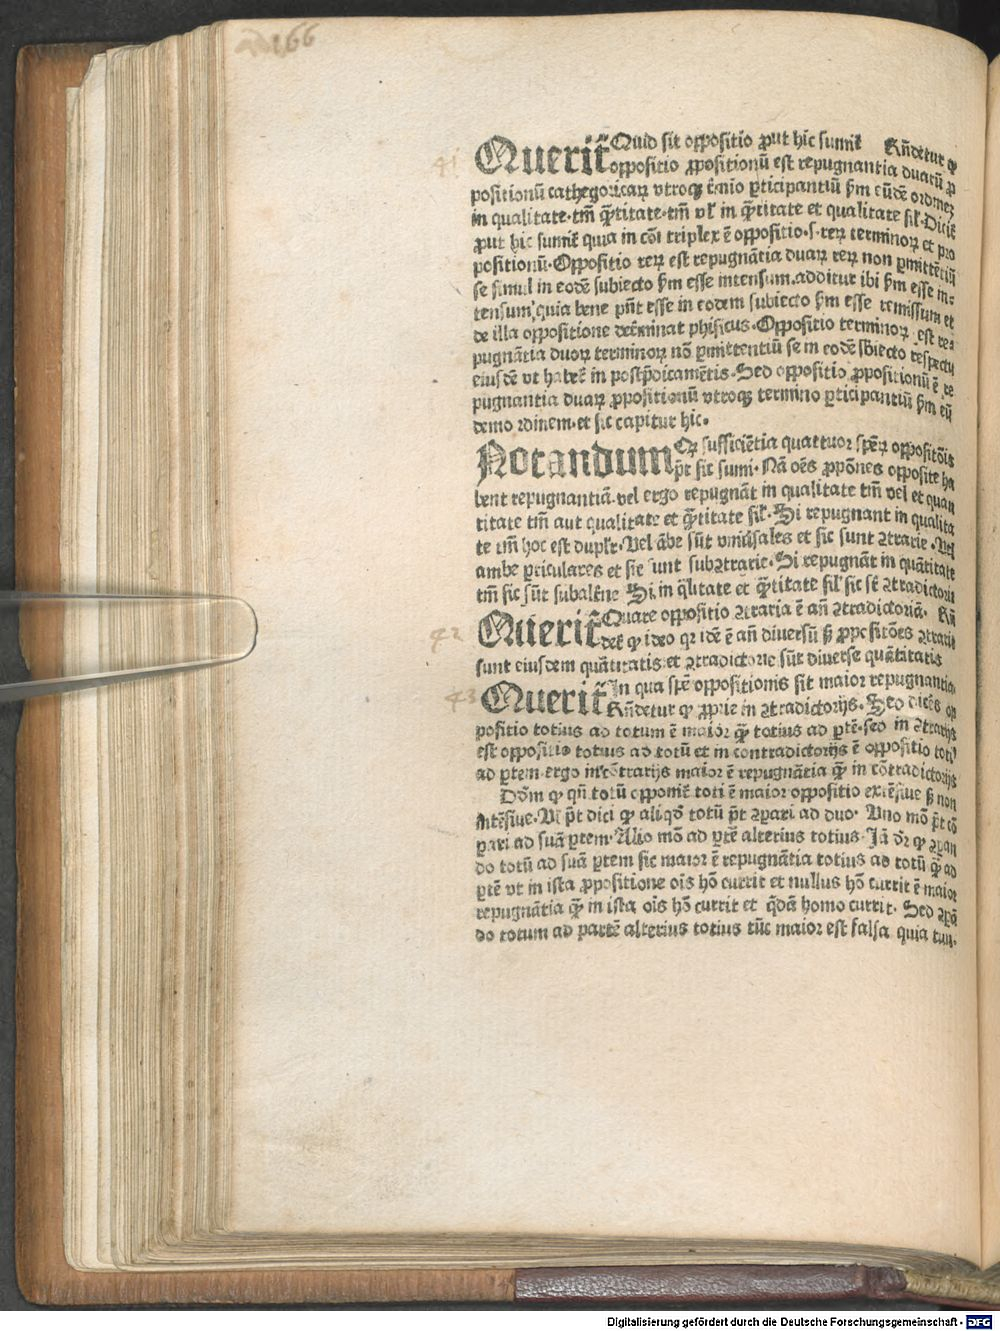 166
41 Querit̃ Quid sit oppositio ꝓut hic sumit̃ Rn̄detur ꝙ
oppositio ꝓpositionū est repugnantia duaꝝ ꝓ
positionū cathegoricaꝝ vtroqꝫ t̃mio ꝑticipantiū ẜm eūdē ordinez
in qualitate. tm̄ q̄titate. tm̄ vl̓ in q̄titate et qualitate sil̓. Dicit̃
ꝓut hic sumit̃ quia in cōi triplex ē oppositio. s. reꝝ terminoꝝ et pro
positionū. Oppositio reꝝ est repugnātia duaꝝ reꝝ non ꝑmittētiū
se simul in eodē subiecto ẜm esse intensum. additur ibi ẜm esse in⸗
tensum, quia bene pn̄t esse in eodem subiecto ẜm esse remissum et
de illa oppositione det̃minat phisicus. Oppositio terminoꝝ est re⸗
pugnātia duoꝝ terminoꝝ nō ꝑmittentiū se in eodē sb̄iecto respectu
eiusdē vt habet̃ in postp̄dicamētis. Sed oppositio ꝓpositionū ē re
pugnantia duaꝝ ꝓpositionū vtroqꝫ termino ꝑticipantiū ẜm eū
demo rdinem. et sic capitur hic.
Notandum Qꝝ sufficiētia quattuor sp̄eꝝ oppositōis
pt̄ sic sumi. Nā oēs ꝓpōnes opposite ha
bent repugnantiā. vel ergo repugnāt in qualitate tm̄ vel et quan
titate tm̄ aut qualitate et q̄titate sil̓. Si repugnant in qualita
te tm̄ hoc est duplr̓. Vel ābe sūt vniūsales et sic sunt ꝯtrarie. Vel
ambe ꝑticulares et sic sunt subꝯtrarie. Si repugnāt in quātitate
tm̄ sic sūt subalt̃ne Si in q̄litate et q̄titate sil̓ sic sūt ꝯtradictorie
42 Querit̃ Quare oppositio ꝯtraria ē an̄ ꝯtradictoriā. Rn̄
det̃ ꝙ ideo qꝛ idē ē an̄ diuersū ẜ ꝓpositōes ꝯtrarie
sunt eiusdem quātitatis et ꝯtradictorie sūt diuerse quātitatis
43 Querit̃ In qua sp̄e oppositionis sit maior repugnantia.
Rn̄detur ꝙ ꝓprie in ꝯtradictorijs. Sed dices op
positio totius ad totum ē maior q̄ totius ad ꝑtē. sed in ꝯtrarijs
est oppositio totius ad totū et in contradictorijs ē oppositio toti⁹
ad ꝑtem. ergo in cōtrarijs maior ē repugnātia q̄ in cōtradictorijs
Dōm ꝙ qn̄ totū opponit̃ toti ē maior oppositio extēsiue ẜ non
intēsiue. Vl̓ pt̄ dici ꝙ aliqd̓ totū pt̄ ꝯꝑari ad duo. Vno mō pt̄ cō
ꝑari ad suā ꝑtem. Alio mō ad ꝑtē alterius totius. Iā dr̄ ꝙ ꝯꝑan
do totū ad suā ꝑtem sic maior ē repugnātia totius ad totū q̄ ad
ꝑtē vt in ista ꝓpositione oīs hō currit et nullus hō currit ē maior
repugnātia q̄ in ista oīs hō currit et q̄dā homo currit. Sed ꝯꝑā
do totum ad partē alterius totius tūc maior est falsa quia tun.
Digitalisierung gefördert durch die Deutsche Forschungsgemeinschaft - DFG